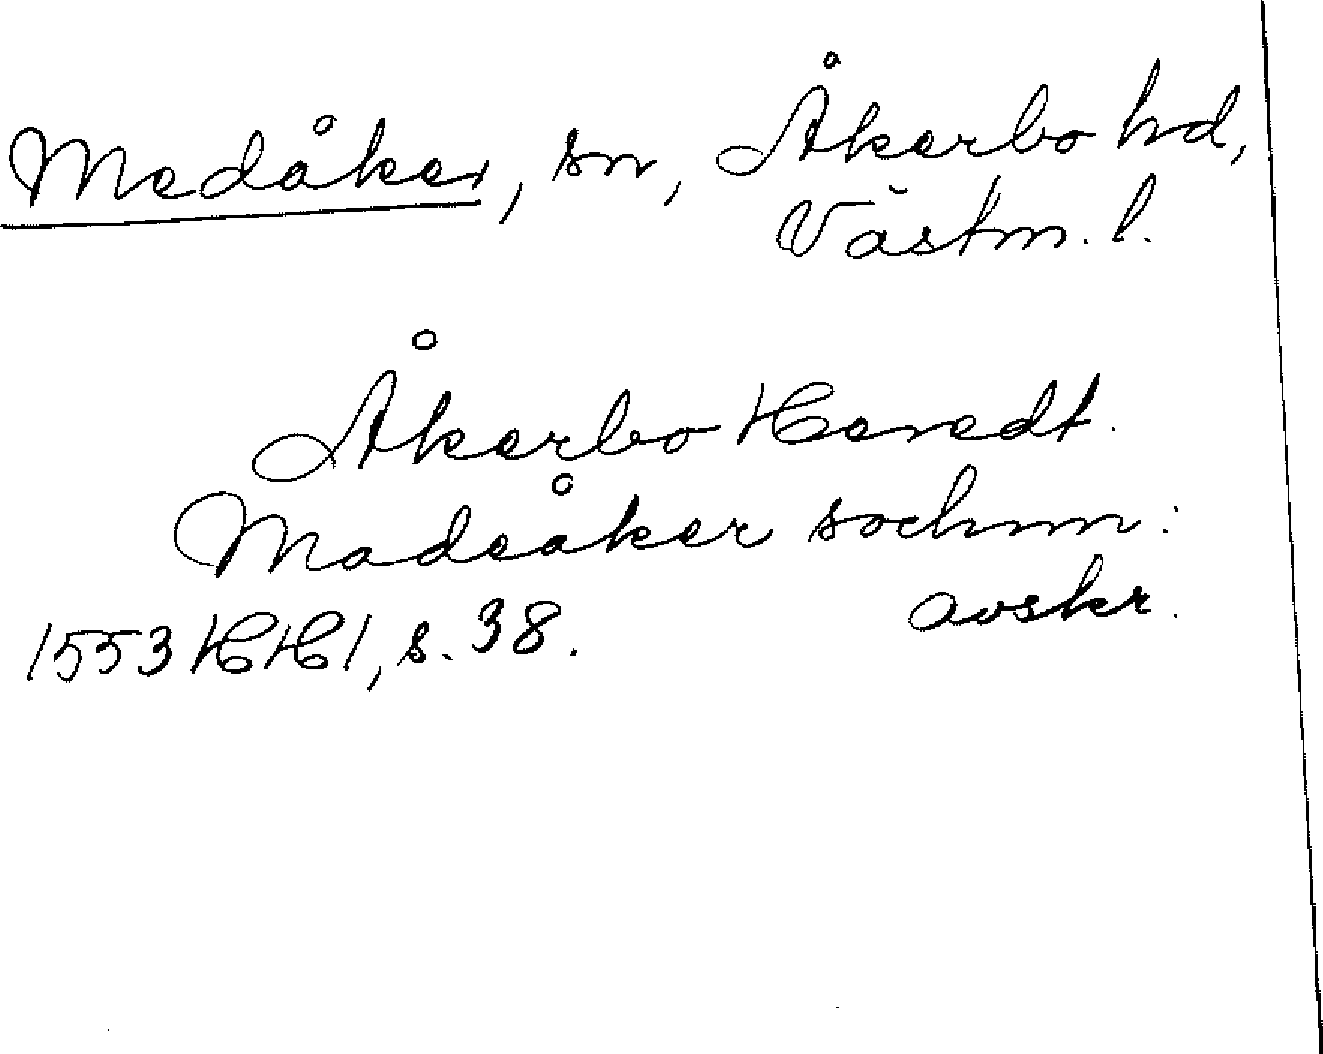 Medåker, sn, Åkerbo hd,
Västm. l.
Åkerbo Heredt.
Madeåker sochnn:
1553 HH 1, s. 38. avskr.